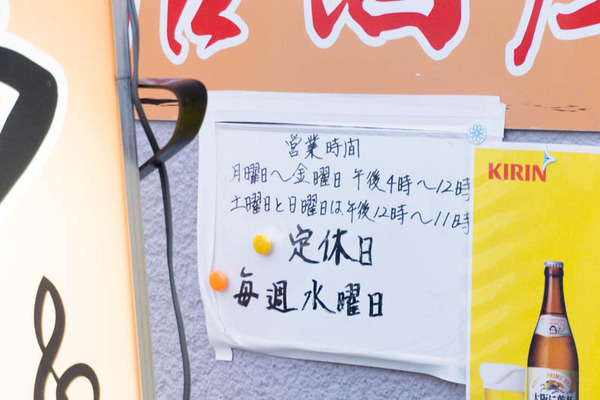 居酒屋
営業時間
月曜日〜金曜日 午後4時〜12時
土曜日と日曜日は午後12時〜11時
定休日
毎週水曜日
KIRIN
大阪に乾杯